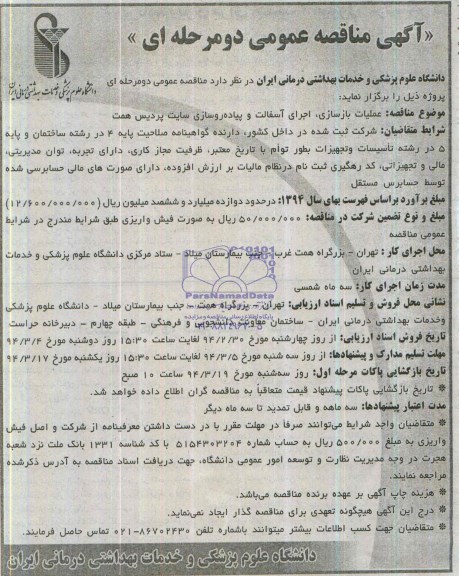 «آگهی مناقصه عمومی دومرحله ای»
دانشگاه علوم پزشکی و خدمات بهداشتی درمانی ایران
دانشگاه علوم پزشکی و خدمات بهداشتی درمانی ایران در نظر دارد مناقصه عمومی دومرحله ای
پروژه ذیل را برگزار نماید:
موضوع مناقصه: عملیات بازسازی، اجرای آسفالت و پیاده‌روسازی سایت پردیس همت
شرایط متقاضیان: شرکت ثبت شده در داخل کشور، دارنده گواهینامه صلاحیت پایه ۴ در رشته ساختمان و پایه
۵ در رشته تأسیسات وتجهیزات بطور توام با تاریخ معتبر، ظرفیت مجاز کاری، دارای تجربه، توان مدیریتی،
مالی و تجهیزاتی، کد رهگیری ثبت نام درنظام مالیات بر ارزش افزوده، دارای صورت های مالی حسابرسی شده
توسط حسابرس مستقل
مبلغ برآورد براساس فهرست بهای سال ۱۳۹۴: درحدود دوازده میلیارد و ششصد میلیون ریال (۱۲/۶۰۰/۰۰۰/۰۰۰)
مبلغ و نوع تضمین شرکت در مناقصه: ۵۰/۰۰۰/۰۰۰ ریال به صورت فیش واریزی طبق شرایط مندرج در شرایط
عمومی مناقصه
محل اجرای کار: تهران – بزرگراه همت غرب – جنب بیمارستان میلاد – ستاد مرکزی دانشگاه علوم پزشکی و خدمات
بهداشتی درمانی ایران
مدت زمان اجرای کار: سه ماه شمسی
نشانی محل فروش و تسلیم اسناد ارزیابی: تهران – بزرگراه همت – جنب بیمارستان میلاد – دانشگاه علوم پزشکی
وخدمات بهداشتی درمانی ایران – ساختمان معاونت دانشجویی و فرهنگی – طبقه چهارم – دبیرخانه حراست
تاریخ فروش اسناد ارزیابی: از روز چهارشنبه مورخ ۹۴/۲/۳۰ لغایت ساعت ۱۵:۳۰ روز دوشنبه مورخ ۹۴/۳/۴
مهلت تسلیم مدارک و پیشنهادها: از روز سه شنبه مورخ ۹۴/۳/۵ لغایت ساعت ۱۵:۳۰ روز یکشنبه مورخ ۹۴/۳/۱۷
تاریخ بازگشایی پاکات مرحله اول: روز سه‌شنبه مورخ ۹۴/۳/۱۹ ساعت ۱۰ صبح
* تاریخ بازگشایی پاکات پیشنهاد قیمت متعاقباً به مناقصه گران اطلاع داده خواهد شد.
مدت اعتبار پیشنهادها: سه ماهه و قابل تمدید تا سه ماه دیگر
* متقاضیان واجد شرایط می‌توانند صرفاً در مهلت مقرر با در دست داشتن معرفینامه از شرکت و اصل فیش
واریزی به مبلغ ۵۰۰/۰۰۰ ریال به حساب شماره ۵۱۵۴۳۰۳۲۰۴ با کد شناسه ۱۳۳۱ بانک ملت نزد شعبه
هجرت در وجه مدیریت نظارت و توسعه امور عمومی دانشگاه، جهت دریافت اسناد مناقصه به آدرس ذکرشده
مراجعه نمایند.
* هزینه چاپ آگهی بر عهده برنده مناقصه می‌باشد.
* درج این آگهی هیچگونه تعهدی برای مناقصه گذار ایجاد نمی‌نماید.
* متقاضیان جهت کسب اطلاعات بیشتر میتوانند باشماره تلفن ۸۶۷۰۲۴۳۰-۰۲۱ تماس حاصل فرمایند.
دانشگاه علوم پزشکی و خدمات بهداشتی درمانی ایران
ParsNamadData